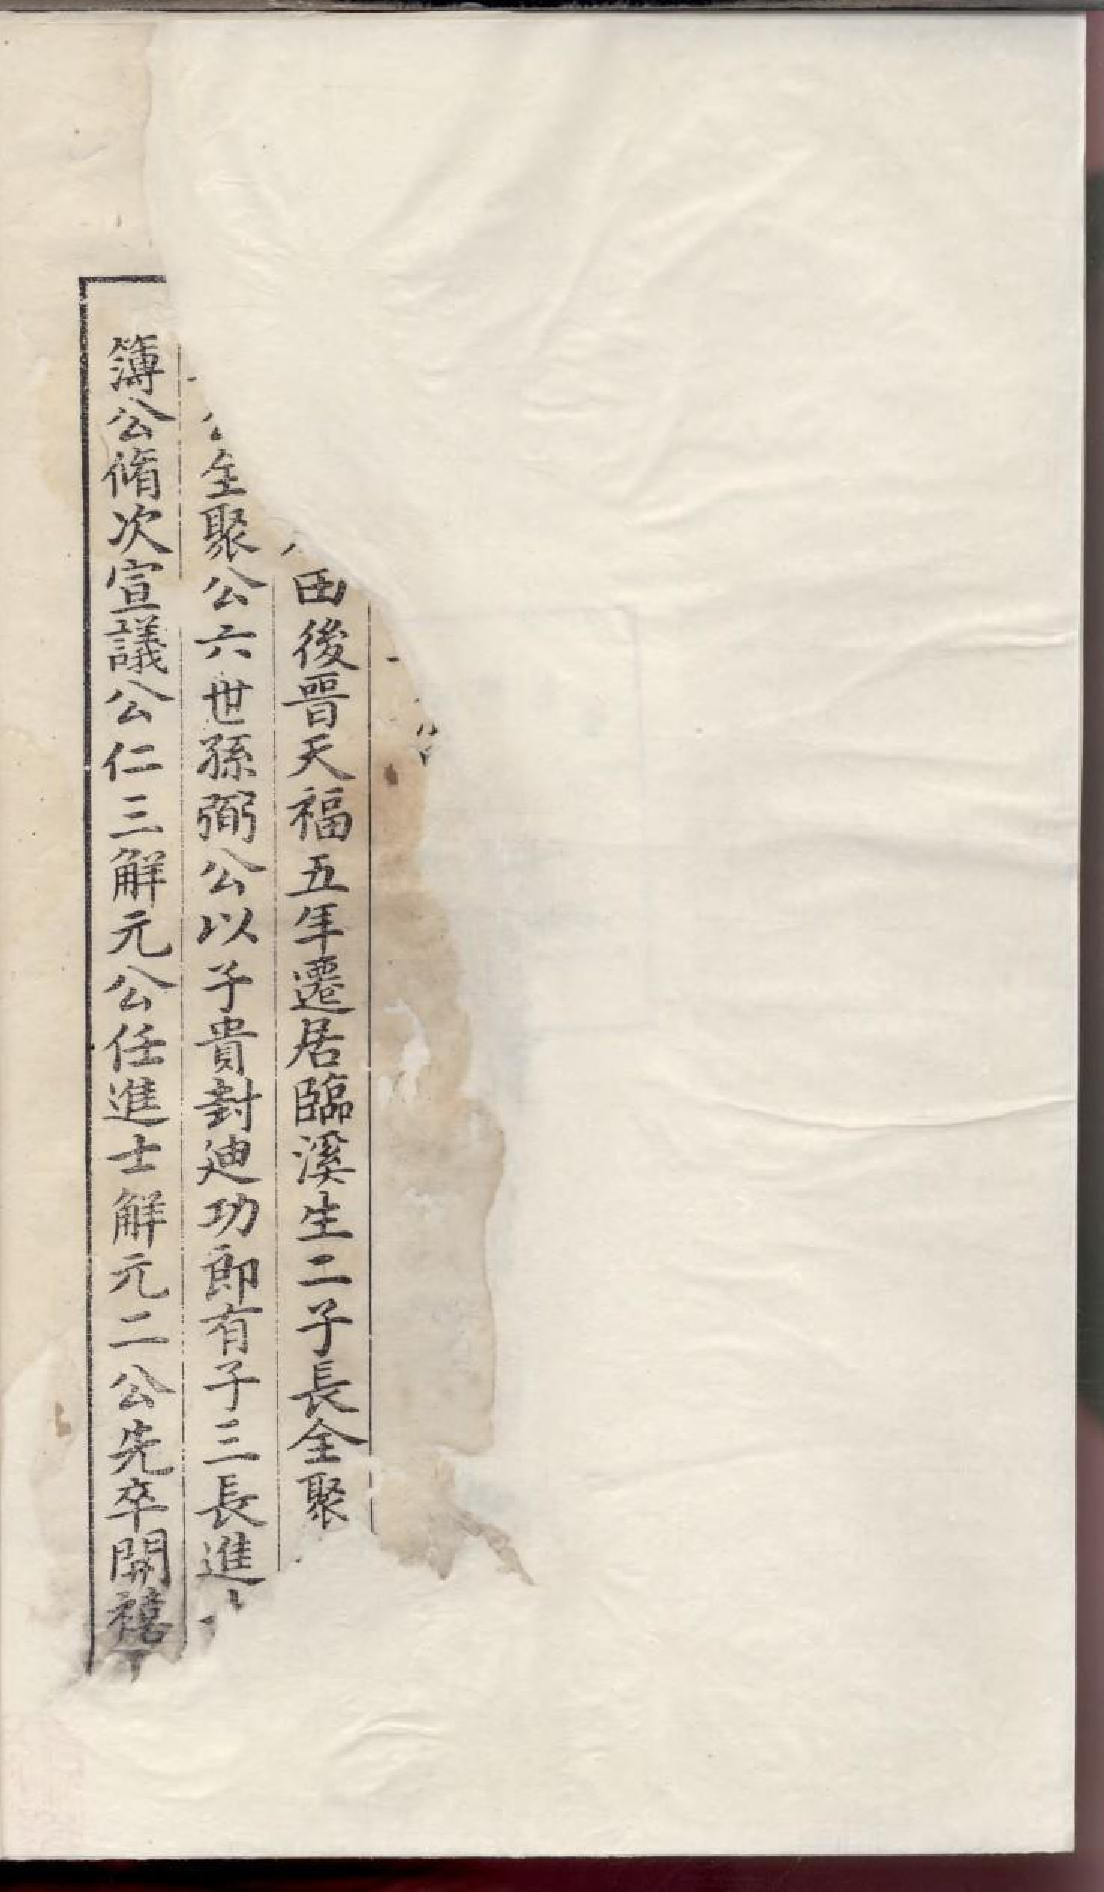 西後晉天福五年遷居臨溪生二子長全聚
全聚公六世孫弼公以子貴封廸功郎有子三長進
簿公脩次宣議公仁三解元公任進士解元二公先卒開禧丁